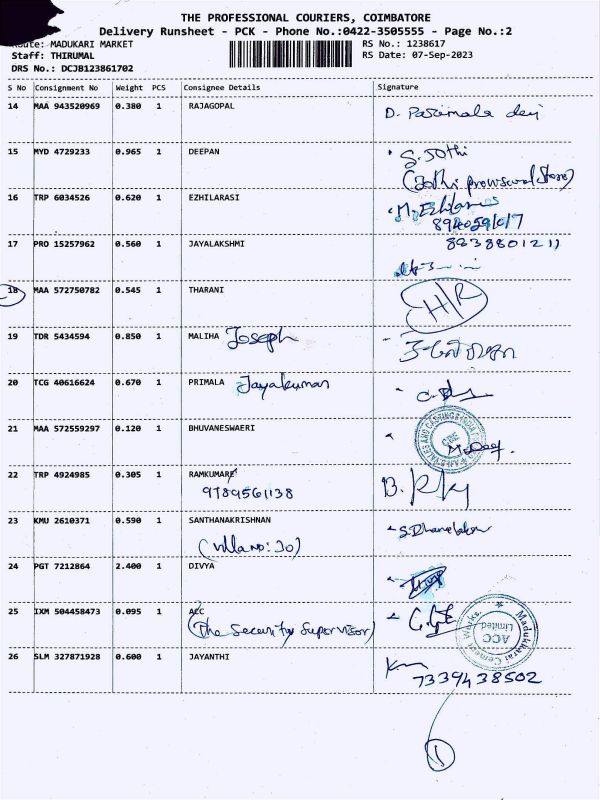 THE PROFESSIONAL COURIERS, COIMBATORE
Delivery Runsheet - PCK - Phone No.:0422-3505555 - Page No.:2
Route: MADUKARI MARKET RS No.: 1238617
Staff: THIRUMAL RS Date: 07-Sep-2023
DRS No.: DCJB123861702
S No Consignment No Weight PCS Consignee Details Signature
14 MAA 943520969 0.380 1 RAJAGOPAL D. Parimala devi
15 MYD 4729233 0.965 1 DEEPAN S. JOthi
(Jothi provisional Store)
16 TRP 6034526 0.620 1 EZHILARASI
17 PRO 15257962 0.560 1 JAYALAKSHMI 8838801211
18 MAA 572750782 0.545 1 THARANI H/R
19 TDR 5434594 0.850 1 MALIHA Joseph
20 TCG 40616624 0.670 1 PRIMALA Jayakumar
21 MAA 572559297 0.120 1 BHUVANESWAERI
22 TRP 4924985 0.305 1 RAMKUMAR
9789561138
23 KMU 2610371 0.590 1 SANTHANAKRISHNAN
(villa no: 30)
24 PGT 7212864 2.400 1 DIVYA
25 IXM 504458473 0.095 1 ACC
(The Security Supervisor)
Madukkarai Cement Works.
ACC Limited
26 SLM 327871928 0.600 1 JAYANTHI
7339438502
1